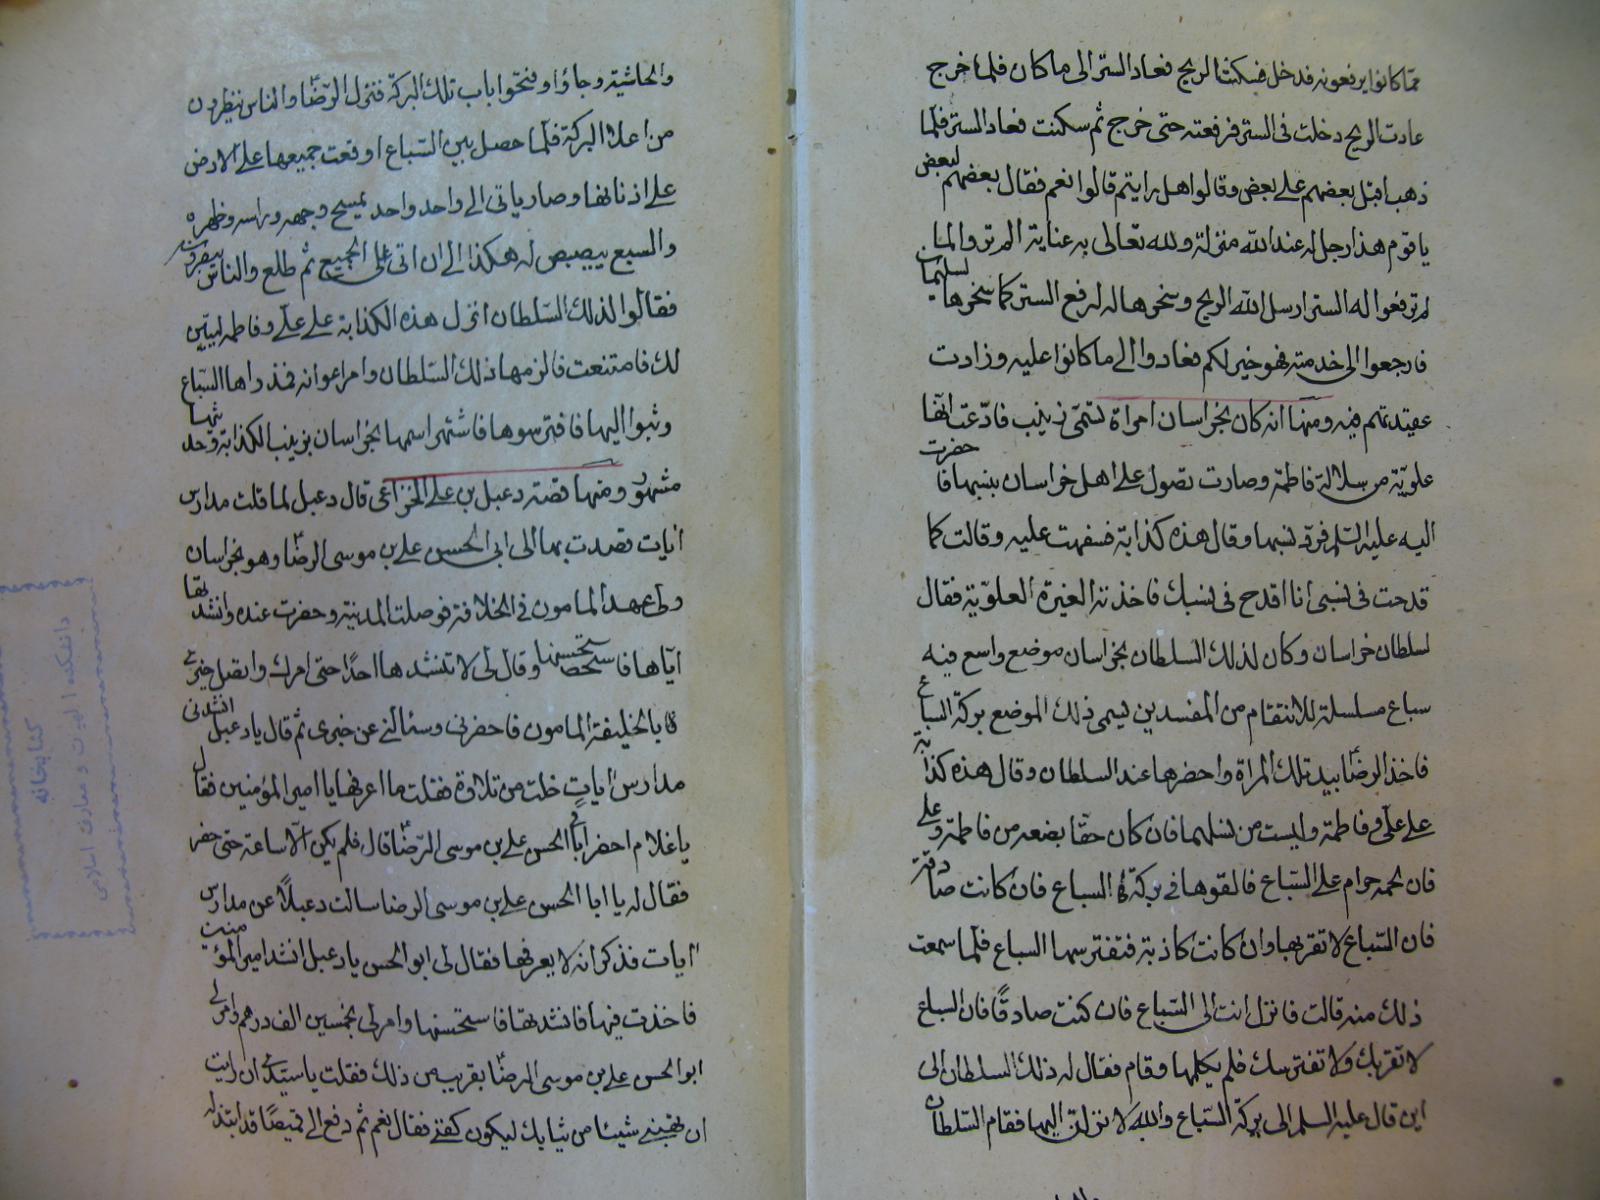 مما كانوا يرفعونه فدخل فسكنت الريح فعاد الستر الى ما كان فلما خرج
عادت الريح دخلت فى الستر فرفعته حتى خرج ثم سكنت فعاد الستر فلما
ذهب اقبل بعضهم على بعض وقالوا هل رايتم قالوا نعم فقال بعضهم لبعض
يا قوم هذا رجل له عند الله منزلة ولله تعالى به عناية الم تروا لما
لم ترفعوا له الستر ارسل الله الريح وسخرها له لرفع الستر كما سخرها لسليمان
فارجعوا الى خدمته فهو خير لكم فعادوا الى ما كانوا عليه وزادت
عقيدتهم فيه ومنها انه كان بخراسان امراة تسمى زينب فادّعت انها
علويّة من سلالة فاطمة وصارت تصول على اهل خراسان بنسبها فا حضرت
اليه عليه السلم فرد نسبها وقال هذه كذابة فسفهت عليه وقالت كما
قدحت فى نسبى انا اقدح فى نسبك فاخذته الغيرة العلويّة فقال
لسلطان خراسان وكان لذلك السلطان بخراسان موضع واسع فيه
سباع مسلسلة للانتقام من المفسدين ليسمى ذلك الموضع بركة السباع
فاخذ الرضا بيد تلك المراة واحضرها عند السلطان وقال هذه كذابة
على على وفاطمة وليست من نسلهما فان كان حقا بضعه من فاطمة وعلى
فان لحمه حرام على السباع فالقوها فى بركة السباع فان كانت صادقة
فان السباع لا تقربها وان كانت كاذبة فتفترسها السباع فلما سمعت
ذلك منه قالت فانزل انت الى السباع فان كنت صادقًا فان السباع
لا تقربك ولا تفترسك فلم يكلمها وقام فقال له ذلك السلطان الى
اين قال عليه السلم الى بركة السباع والله لانزلن اليها فقام السلطان
والحاشية وجاؤا وفتحوا باب تلك البركة فنزل الرضا والناس ينظرون
من اعلا البركة فلما حصل بين السباع اوقعت جميعها على الارض
على اذنابها وصار ياتى الى واحد واحد يمسح وجهه وراسه وظهره
والسبع يبصبص له هكذا الى ان اتى على الجميع ثم طلع والناس يبصرونه
فقالوا لذلك السلطان انزل هذه الكذابة على على وفاطمه ليتبين
لك فامتنعت فالزمها ذلك السلطان وامر اعوانه فمذ راها السباع
وثبوا اليها فافترسوها فاشتهر اسمها بخراسان بزينب الكذابة وحديثها
مشهور ومنها قصة دعبل بن على الخزاعى قال دعبل لما قلت مدارس
ايات قصدت بها الى ابى الحسن على بن موسى الرضا وهو بخراسان
ولى عهد المامون فى الخلافة فوصلت المدينة وحضرت عنده وانشدتها
اياها فاستحسنها وقال لى لا تنشدها احدًا حتى امرك واتصل خبرى
بالخليفة المامون فاحضرنى وسئالنى عن خبرى ثم قال يا دعبل انشدنى
مدارس ايات خلت من تلاوة فقلت ما اعرفها يا امير المؤمنين فقال
يا غلام احضر ابا الحسن على بن موسى الرضا قال فلم يكن الا ساعة حتى حضر
فقال له يا ابا الحسن على بن موسى الرضا سالت دعبلاً عن مدارس
ايات فذكر انه لا يعرفها فقال لى ابو الحسن يا دعبل انشد امير المؤمنين
فاخذت فيها فانشدتها فاستحسنها وامر لى بخمسين الف درهم وامر لى
ابو الحسن على بن موسى الرضا بقريب من ذلك فقلت يا سيدى ان رايت
ان تهبنى شيئا من ثيابك ليكون كفنى فقال نعم ثم دفع الى قميصًا قد ابتذله
كتابخانه
دانشكده الهيات و معارف اسلامى